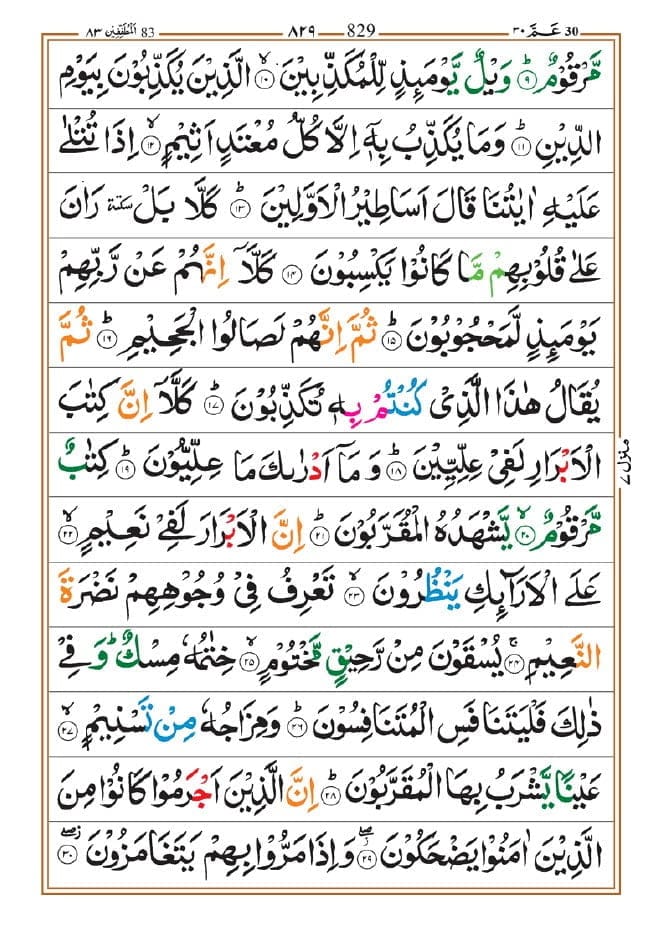 عَمَّ ٣٠ 30 829 ٨٢٩ 83 اَلْمُطَفِّفِيْن ٨٣
مَّرْقُوْمٌ ؕ‏ ۹ وَيْلٌ يَّوْمَٮِٕذٍ لِّلْمُكَذِّبِيْنَۙ‏ ۱۰ الَّذِيْنَ يُكَذِّبُوْنَ بِيَوْمِ
الدِّيْنِؕ‏ ۱۱ وَمَا يُكَذِّبُ بِهٖۤ اِلَّا كُلُّ مُعْتَدٍ اَثِيْمٍۙ‏ ۱۲ اِذَا تُتْلٰى
عَلَيْهِ اٰيٰتُنَا قَالَ اَسَاطِيْرُ الْاَوَّلِيْنَؕ‏ ۱۳ كَلَّا بَلْ سكتة رَانَ
عَلٰى قُلُوْبِهِمْ مَّا كَانُوْا يَكْسِبُوْنَ‏ ۱۴ كَلَّاۤ اِنَّهُمْ عَنْ رَّبِّهِمْ
يَوْمَٮِٕذٍ لَّمَحْجُوْبُوْنَؕ‏ ۱۵ ثُمَّ اِنَّهُمْ لَصَالُوا الْجَحِيْمِؕ‏ ۱۶ ثُمَّ
يُقَالُ هٰذَا الَّذِىْ كُنْتُمْ بِهٖ تُكَذِّبُوْنَؕ‏ ۱۷ كَلَّاۤ اِنَّ كِتٰبَ
الْاَبْرَارِ لَفِىْ عِلِّيِّيْنَؕ‏ ۱۸ وَمَاۤ اَدْرٰٮكَ مَا عِلِّيُّوْنَؕ‏ ۱۹ كِتٰبٌ
مَّرْقُوْمٌۙ‏ ۲۰ يَّشْهَدُهُ الْمُقَرَّبُوْنَؕ‏ ۲۱ اِنَّ الْاَبْرَارَ لَفِىْ نَعِيْمٍۙ‏ ۲۲
عَلَى الْاَرَآٮِٕكِ يَنْظُرُوْنَۙ‏ ۲۳ تَعْرِفُ فِىْ وُجُوْهِهِمْ نَضْرَةَ
النَّعِيْمِۚ‏ ۲۴ يُسْقَوْنَ مِنْ رَّحِيْقٍ مَّخْتُوْمٍۙ‏ ۲۵ خِتٰمُهٗ مِسْكٌ ؕ وَفِىْ
ذٰلِكَ فَلْيَتَنَافَسِ الْمُتَنَافِسُوْنَؕ‏ ۲۶ وَمِزَاجُهٗ مِنْ تَسْنِيْمٍۙ‏ ۲۷
عَيْنًا يَّشْرَبُ بِهَا الْمُقَرَّبُوْنَؕ‏ ۲۸ اِنَّ الَّذِيْنَ اَجْرَمُوْا كَانُوْا مِنَ
الَّذِيْنَ اٰمَنُوْا يَضْحَكُوْنَۖ‏ ۲۹ وَاِذَا مَرُّوْا بِهِمْ يَتَغَامَزُوْنَۖ‏ ۳۰
منزل ٧